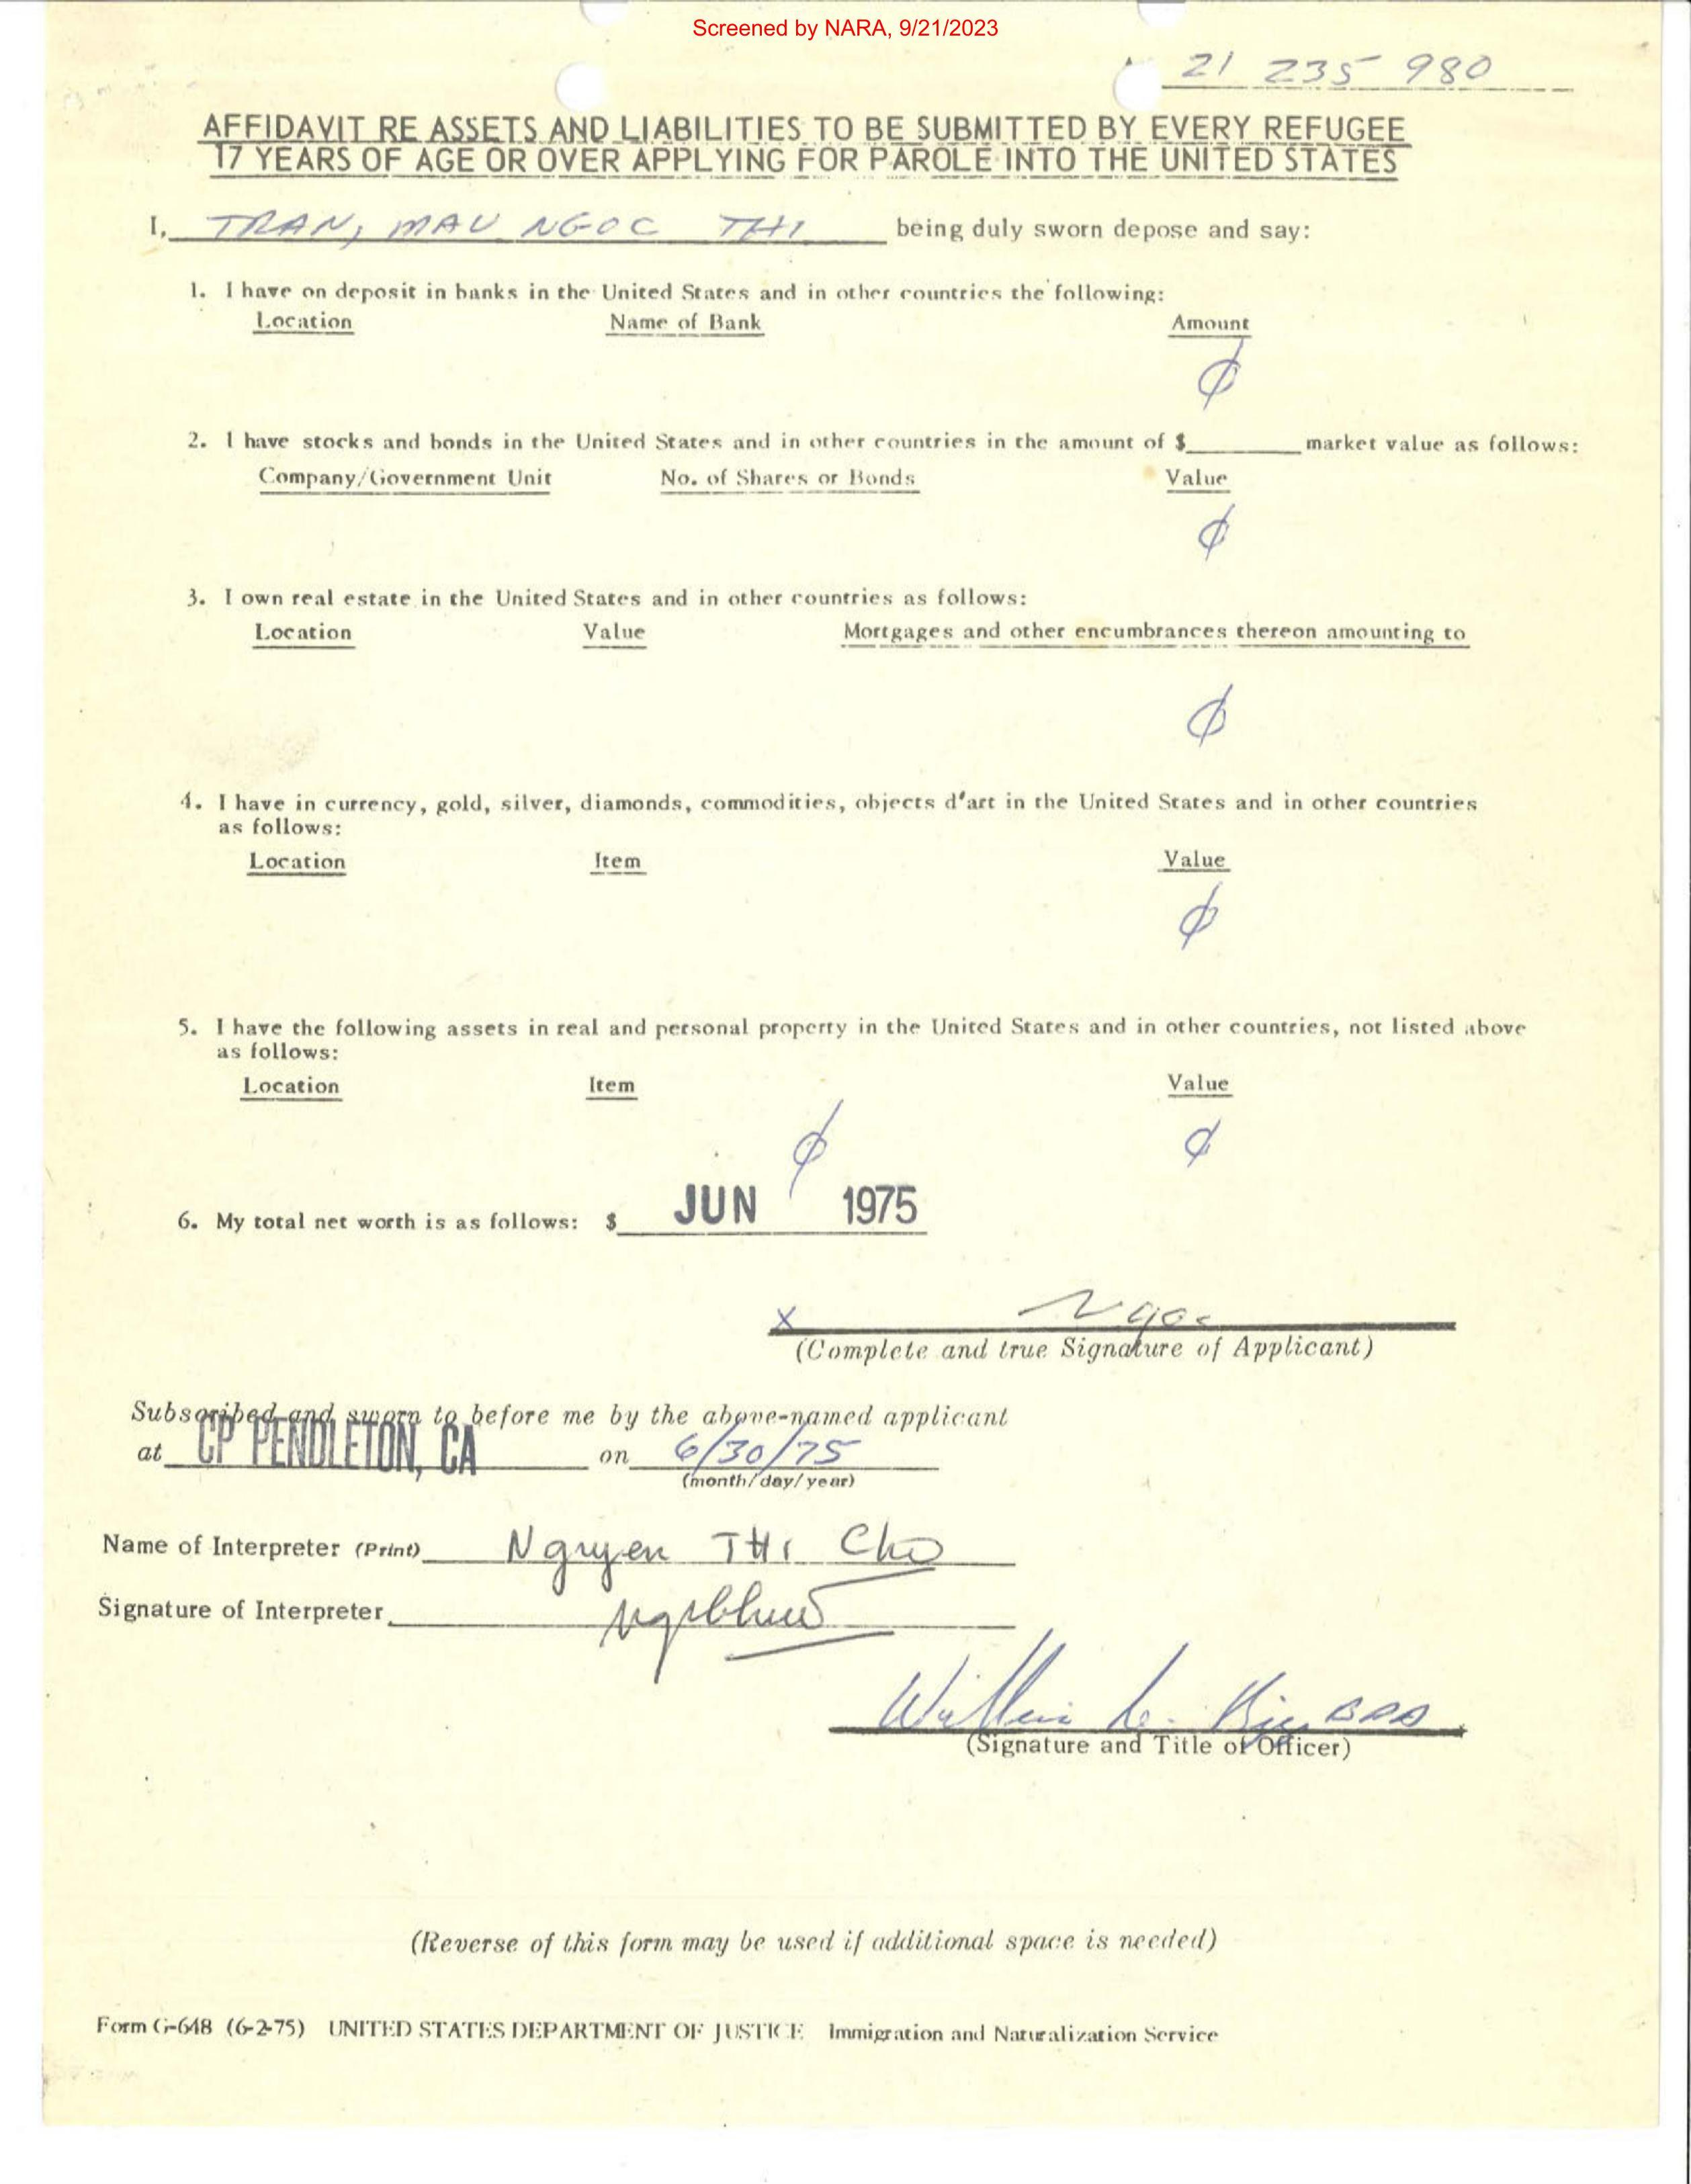 Screened by NARA, 9/21/2023
21 235 980
AFFIDAVIT RE ASSETS AND LIABILITIES TO BE SUBMITTED BY EVERY REFUGEE
17 YEARS OF AGE OR OVER APPLYING FOR PAROLE INTO THE UNITED STATES
I, TRAN, MAU NGOC THI being duly sworn depose and say:
1. I have on deposit in banks in the United States and in other countries the following:
Location Name of Bank Amount
∅
2. I have stocks and bonds in the United States and in other countries in the amount of $ market value as follows:
Company/Government Unit No. of Shares or Bonds Value
∅
3. I own real estate in the United States and in other countries as follows:
Location Value Mortgages and other encumbrances thereon amounting to
∅
4. I have in currency, gold, silver, diamonds, commodities, objects d'art in the United States and in other countries
as follows:
Location Item Value
∅
5. I have the following assets in real and personal property in the United States and in other countries, not listed above
as follows:
Location Item Value
∅ ∅
6. My total net worth is as follows: $ JUN 1975
x Ngoc
(Complete and true Signature of Applicant)
Subscribed and sworn to before me by the above-named applicant
at CP PENDLETON, CA on 6/30/75
(month/day/year)
Name of Interpreter (Print) Nguyen THI Cho
Signature of Interpreter
William L.
(Signature and Title of Officer)
(Reverse of this form may be used if additional space is needed)
Form G-648 (6-2-75) UNITED STATES DEPARTMENT OF JUSTICE Immigration and Naturalization Service